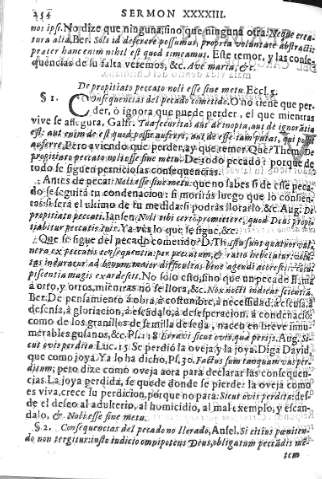 254 SERMON XXXXIII.
nos ipsi. No dize que ninguna, sino que ninguna otra: Neque crea-
tura alia. Ber. Solis id deserere possumus, propria voluntate
præter hanc enim nihil est quod timeamus. Este temor, y las conse-
quencias de su falta veremos, &c. Ave maria, &c.
De propitiato peccato noli esse sine metu. Eccl. 5.
§ 1. Consequencias del pecado cometido. O no tiene que per-
der, ò ignora que puede perder, el que mientras
vive se assegura. Galfr. Tua securitas aut de inopia, aut de ignorātia
est: aut enim de est quod possit auferri, aut de esse
auferri. Pero aviendo que perder, ay que temer. Que? Thom. De
propitiato peccato noli esse sine metu. De todo pecado: porque de
todo se siguen perniciosas consequencias.
Antes de pecar: Noli esse sine metu: que no sabes si de esse peca-
do se seguirà tu condenacion: si moriràs luego que lo consien-
tas: si serà el ultimo de tu medida: si podràs llorarlo, &c. Aug. De
propitiato peccati. Iansen. Noli tibi certò promittere, quod Deus propi-
tiabitur peccatis tuis. Ya ves lo que se sigue, &c.
Que se sigue del pecado cometido? D. Th.
nera ex peccatis consequentia: per peccatum, & ratio hebetatur:
tas induratur ad bonum: maior difficultas bene agendi accrescit:
piscentia magis exardescit. No solo esso, sino que un pecado llama
à otro, y otros, mientras no se llora, &c. Nox nocti indicat scientiā.
Ber. De pensamiento à obra, à costumbre, à necessidad, à escusa, à
defensa, à gloriacion, à escandalo, à desesperacion, à condenaciō:
como de los granillos de semilla de seda, nacen en breve innu-
merables gusanos, &c. Ps. 118. Erravi sicut ovis quæ perijt. Aug. Si-
cut ovis perdita. Luc. 15. Se perdiò la oveja y la joya. Diga David,
que como joya. Ya lo ha dicho, Ps. 30. Factus sum tanquam vas per-
ditum; pero dize como oveja aora para declarar las consequen-
cias. La joya perdida, se quede donde se pierde: la oveja como
es viva, crece su perdicion, porque no para: Sicut ovis perdita:
de el deseo al adulterio, al homicidio, al mal exemplo, y escan-
dalo, &c. Noli esse sine metu.
§ 2. Consequencias del pecado no llorado, Ansel. Si citius pæniten-
do non tergitur: iusto iudicio omnipotens Deus, obligatum peccātis
tem